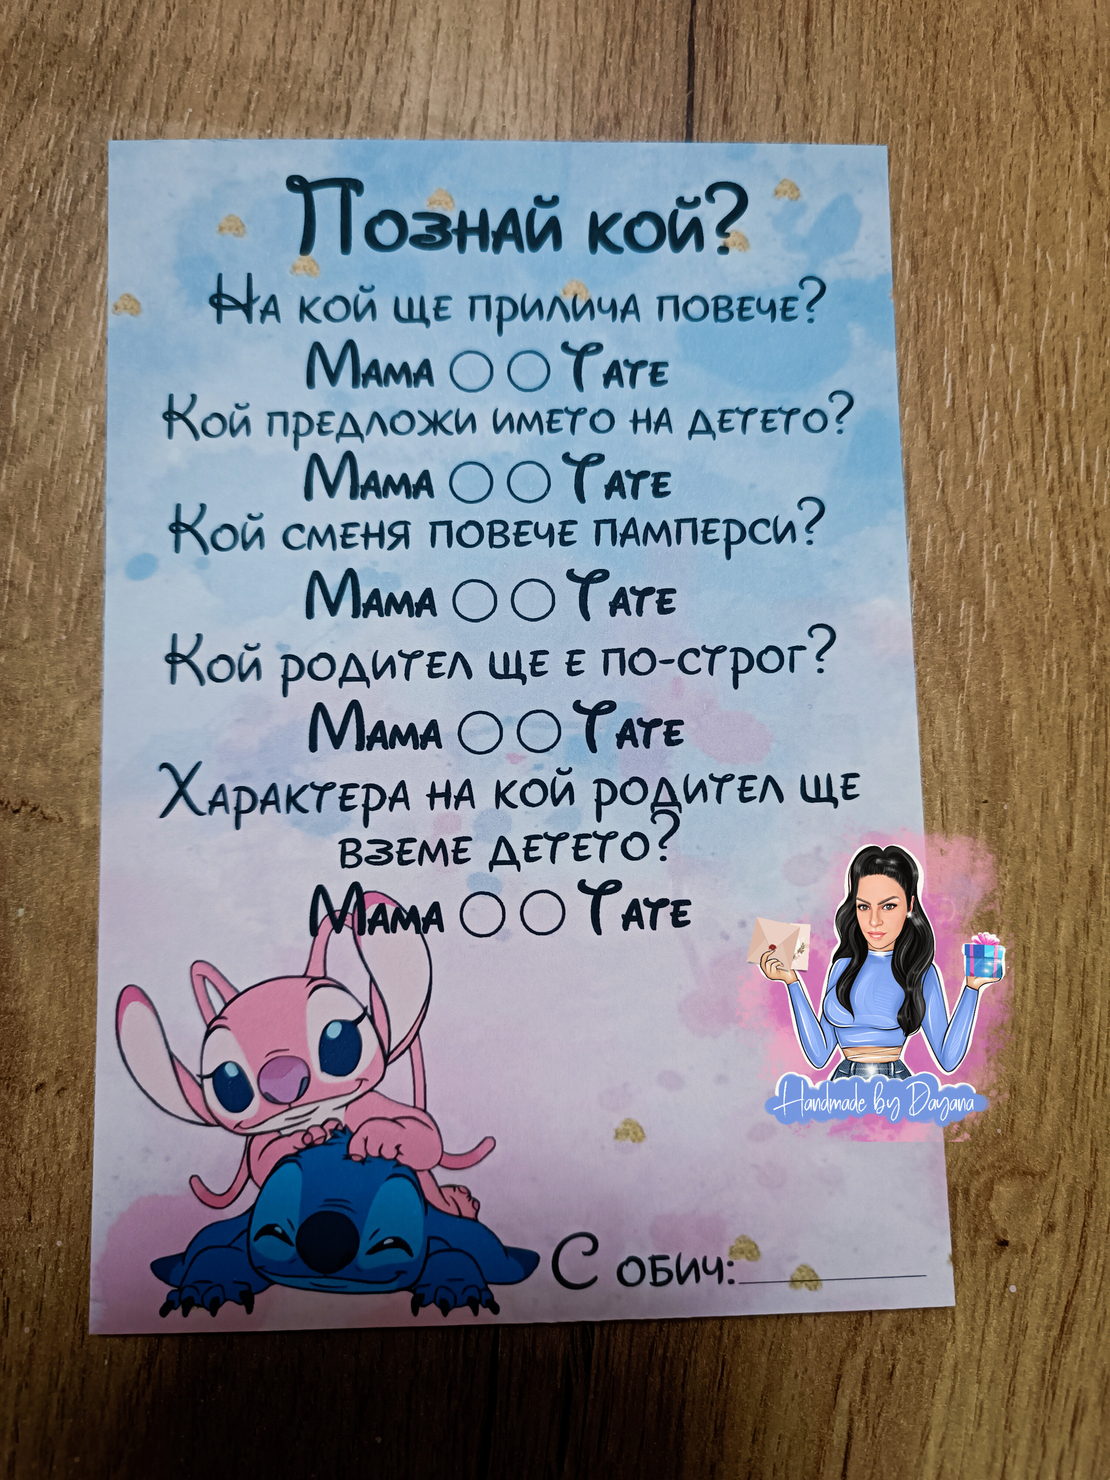 Познай кой?
На кой ще прилича повече?
Мама ○ ○ Тате
Кой предложи името на детето?
Мама ○ ○ Тате
Кой сменя повече памперси?
Мама ○ ○ Тате
Кой родител ще е по-строг?
Мама ○ ○ Тате
Характера на кой родител ще
вземе детето?
Мама ○ ○ Тате
Handmade by Dayana
С обич:____________